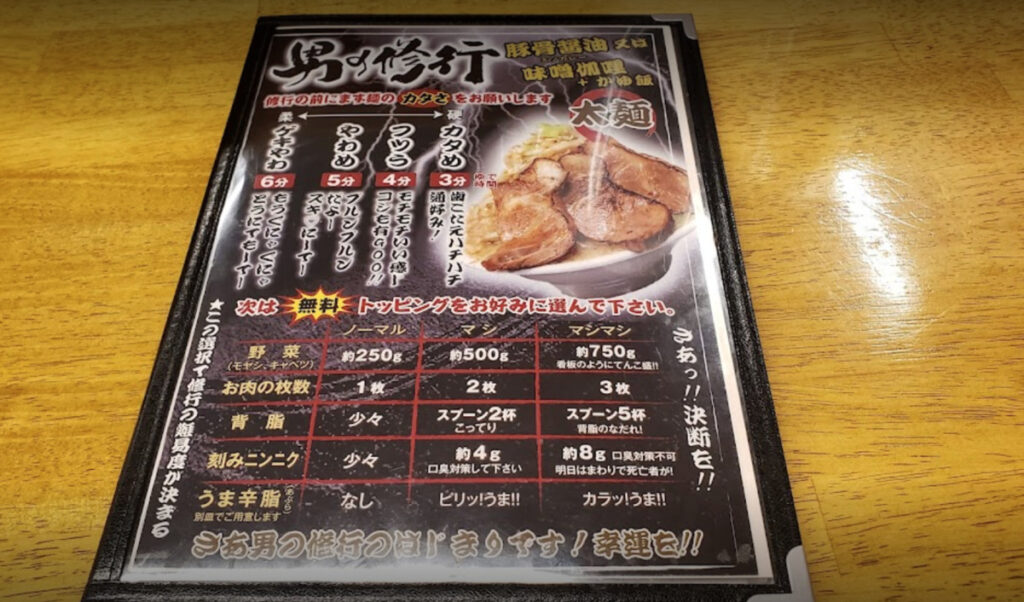 男の修行
豚骨醤油 又は
味噌伽哩
+かゆ飯
太麺
修行の前にまず麺のカタさをお願いします
柔 硬
カタめ
3分
歯ごたえバチバチ
通好み!
フツウ
4分
モチモチいい感ー
コシも有GOO!!
やわめ
5分
プルンプルン
だよー
スキーにーてー
ゲキやわ
6分
もうぐにゃぐにゃ
どうにでもーてー
次は 無料 トッピングをお好みに選んで下さい。
ノーマル マシ マシマシ
野菜 約250g 約500g 約750g
(モヤシ、キャベツ) 看板のようにてんこ盛!!
お肉の枚数 1枚 2枚 3枚
背脂 少々 スプーン2杯 スプーン5杯
こってり 背脂のなだれ!
刻みニンニク 少々 約4g 約8g 口臭対策不可
口臭対策して下さい 明日はまわりで死亡者が!
うま辛脂(あぶら) なし ピリッ!うま!! カラッ!うま!!
別皿でご用意します
★この選択で修行の難易度が決まる
さあっ!!決断を!!
さあ男の修行のはじまりです!幸運を!!